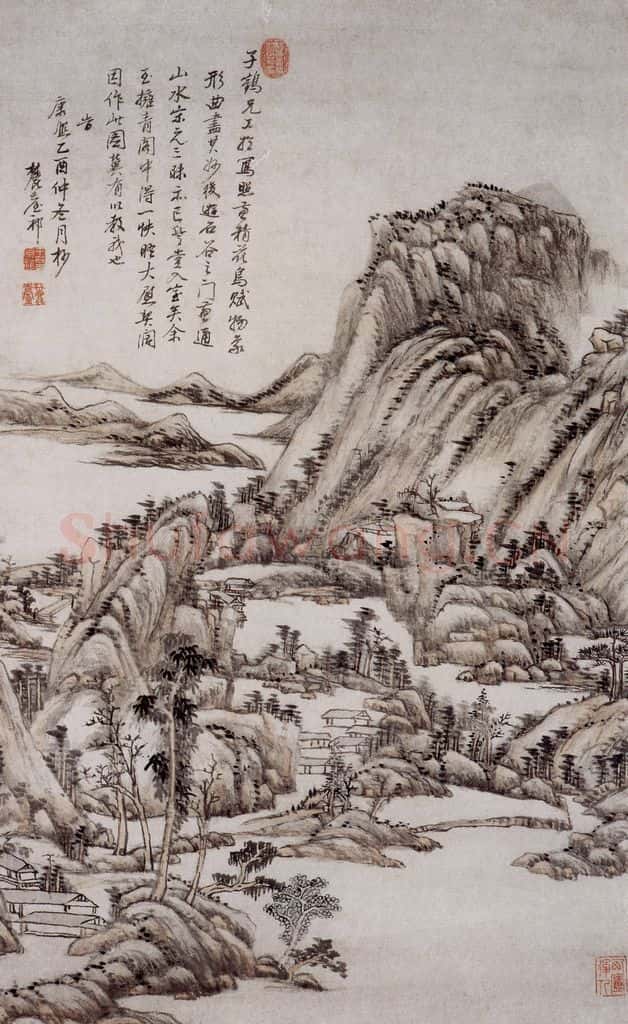 子鶴兄工於寫照更精花鳥賦物象
形曲盡其妙後遊石谷之門畫通
山水宋元三昧亦已登堂入室矣余
至擁青閣中得一快晤大慰契闊
因作此圖冀有以教我也
旹
康熙乙酉仲冬月杪
麓臺祁